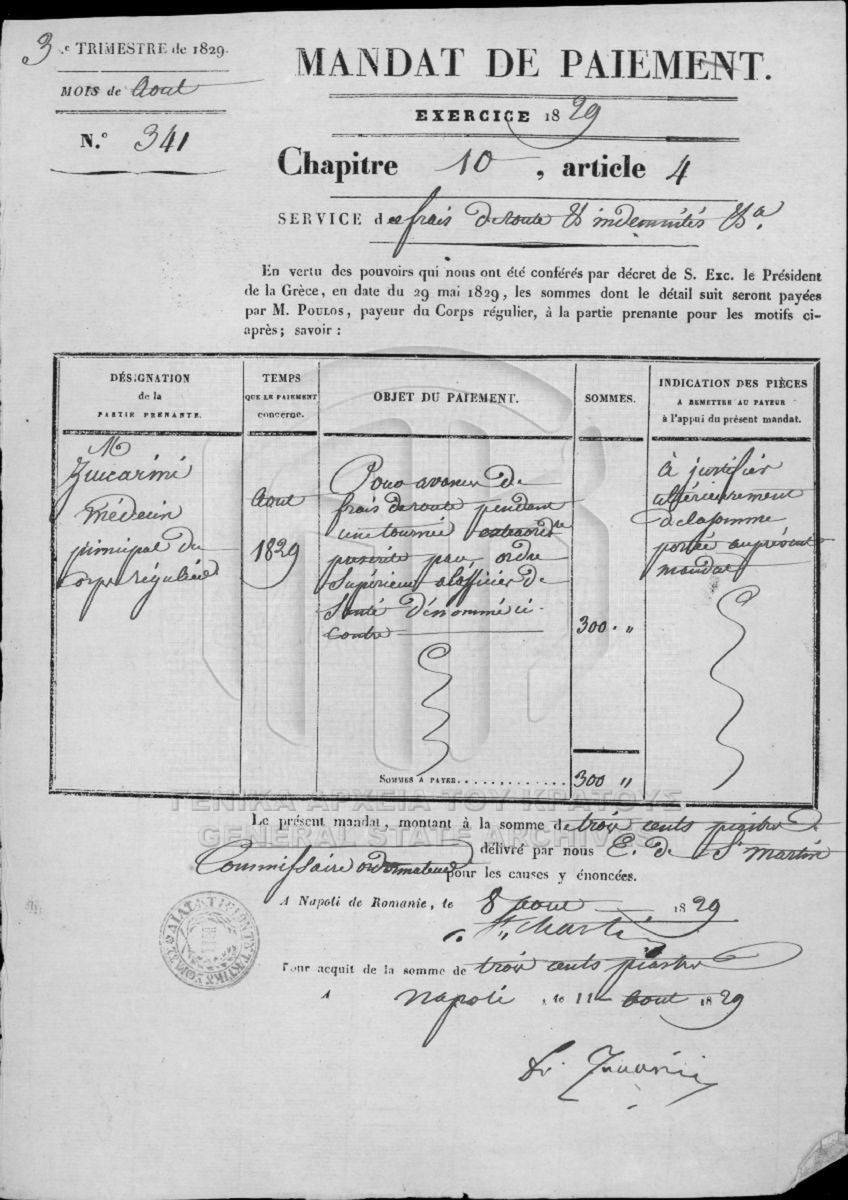 3.e TRIMESTRE de 1829.
MOIS de Aout
N.° 341
MANDAT DE PAIEMENT.
EXERCICE 1829
Chapitre 10, article 4
SERVICE des frais de route & indemnités &a.
En vertu des pouvoirs qui nous ont été conférés par décret de S. Exc. le Président
de la Grèce, en date du 29 mai 1829, les sommes dont le détail suit seront payées
par M. POULOS, payeur du Corps régulier, à la partie prenante pour les motifs ci-
après; savoir :
DÉSIGNATION
de la
PARTIE PRENANTE.
TEMPS
QUE LE PAIEMENT
concerne.
OBJET DU PAIEMENT.
SOMMES.
INDICATION DES PIÈCES
A REMETTRE AU PAYEUR
à l'appui du présent mandat.
Mr
Zuccarini
Médecin
principal du
Corps régulier
Aout
1829
Pour avance de
frais de route pendant
une tournée extraordre
prescrite par ordre
Supérieur à l'officier de
Santé dénommé ci-
contre
300 . "
à justifier
ultérieurement
de la somme
portée au présent
mandat
SOMMES A PAYER.............
300 "
ΓΕΝΙΚΑ ΑΡΧΕΙΑ ΤΟΥ ΚΡΑΤΟΥΣ
GENERAL STATE ARCHIVES
Le présent mandat, montant à la somme de trois cents piastres
délivré par nous E. de St Martin
Commissaire ordonnateur pour les causes y énoncées.
A Napoli de Romanie, le 8 aout 1829
Pour acquit de la somme de trois cents piastres
A Napoli, le 11 aout 1829
Dr.